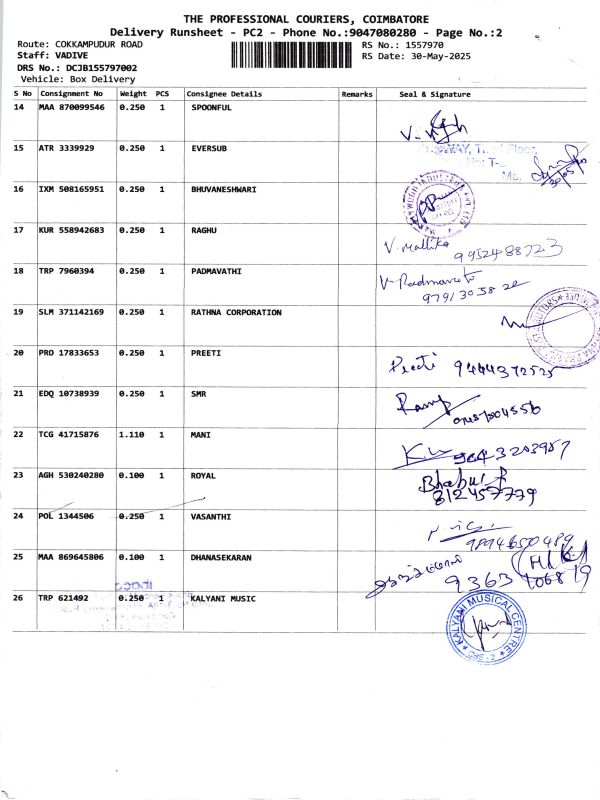 THE PROFESSIONAL COURIERS, COIMBATORE
Delivery Runsheet - PC2 - Phone No.:9047080280 - Page No.:2
Route: COKKAMPUDUR ROAD
RS No.: 1557970
Staff: VADIVE
RS Date: 30-May-2025
DRS No.: DCJB155797002
Vehicle: Box Delivery
S No Consignment No Weight PCS Consignee Details Remarks Seal & Signature
14 MAA 870099546 0.250 1 SPOONFUL
15 ATR 3339929 0.250 1 EVERSUB
16 IXM 508165951 0.250 1 BHUVANESHWARI
17 KUR 558942683 0.250 1 RAGHU V. Mallika
9952488723
18 TRP 7960394 0.250 1 PADMAVATHI V. Padmavati
19 SLM 371142169 0.250 1 RATHNA CORPORATION
20 PRO 17833653 0.250 1 PREETI Preeti 9444372525
21 EDQ 10738939 0.250 1 SMR
22 TCG 41715876 1.110 1 MANI
23 AGH 530240280 0.100 1 ROYAL
812457779
24 POL 1344506 0.250 1 VASANTHI
9894650489
25 MAA 869645806 0.100 1 DHANASEKARAN
26 TRP 621492 0.250 1 KALYANI MUSIC KALYANI MUSICAL CENTRE